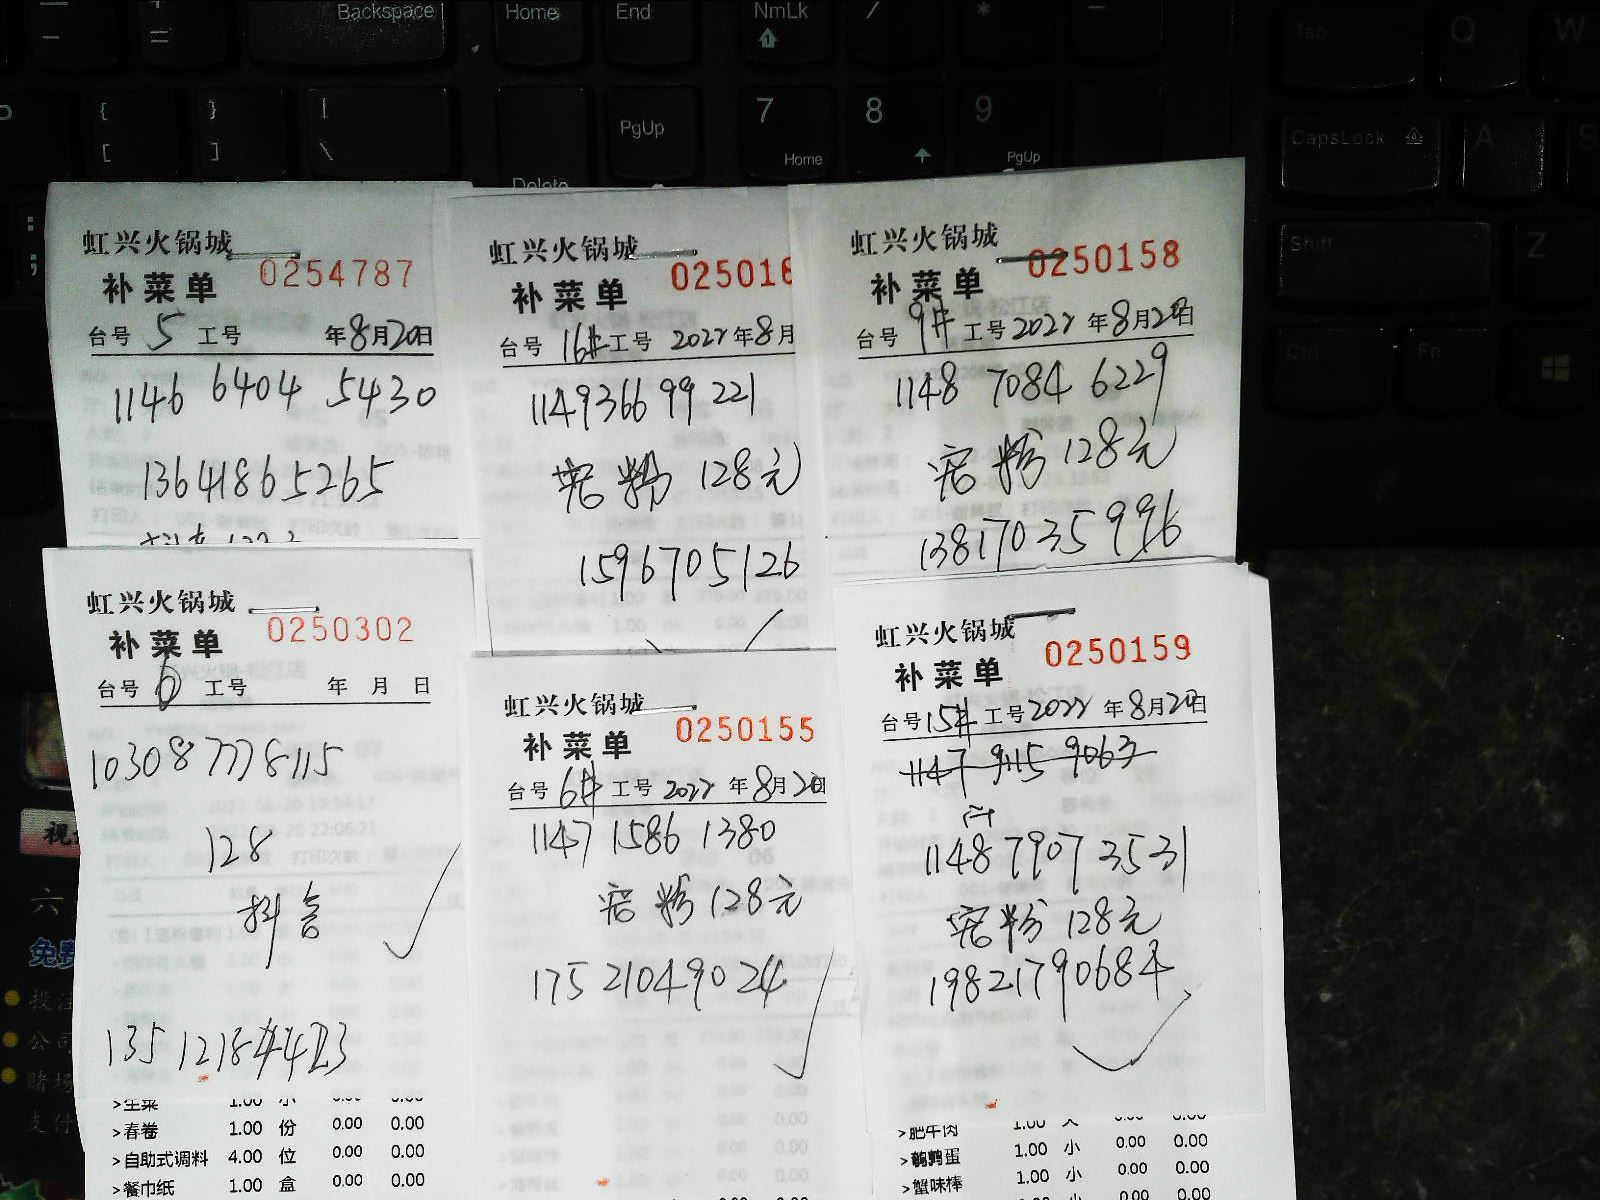 Backspace
Home
End
NmLk
PgUp
7
Home
8
9
PgUp
Delete
Tab
Q
W
CapsLock
A
S
Shift
Z
Ctrl
Fn
虹兴火锅城
补菜单 0254787
台号 5 工号 年8月20日
1146 6404 5430
13641865265
虹兴火锅城
补菜单 025016
台号 16# 工号 2022年8月
1149366 99 221
宠粉 128元
1596705126
虹兴火锅城
补菜单 0250158
台号 9# 工号 2022年8月20日
1148 7084 6229
宠粉 128元
13817035996
虹兴火锅城
补菜单 0250302
台号 6 工号 年 月 日
103087778115
128
抖音
>生菜 1.00 小 0.00 0.00
>春卷 1.00 份 0.00 0.00
>自助式调料 4.00 位 0.00 0.00
>餐巾纸 1.00 盒 0.00 0.00
虹兴火锅城
补菜单 0250155
台号 6# 工号 2022年8月20日
1147 1586 1380
宠粉 128元
17521049024
虹兴火锅城
补菜单 0250159
台号 15# 工号 2022年8月20日
1147 9115 9063
1148 7907 3531
宠粉 128元
19821790684
>肥牛肉 1.00 大 0.00 0.00
>鹌鹑蛋 1.00 小 0.00 0.00
>蟹味棒 1.00 小 0.00 0.00